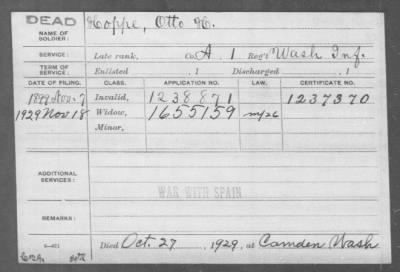 DEAD
NAME OF SOLDIER: Hoppe, Otto H.
SERVICE: Late rank, Co. A 1 Reg't Wash Inf.
TERM OF SERVICE: Enlisted , 1 Discharged , 1
DATE OF FILING. CLASS. APPLICATION NO. LAW. CERTIFICATE NO.
1899 Nov. 7 Invalid, 1238871 1237370
1929 Nov 18 Widow, 1655159
Minor,
ADDITIONAL SERVICES:
WAR WITH SPAIN
REMARKS:
Died Oct. 27, 1929, at Camden Wash